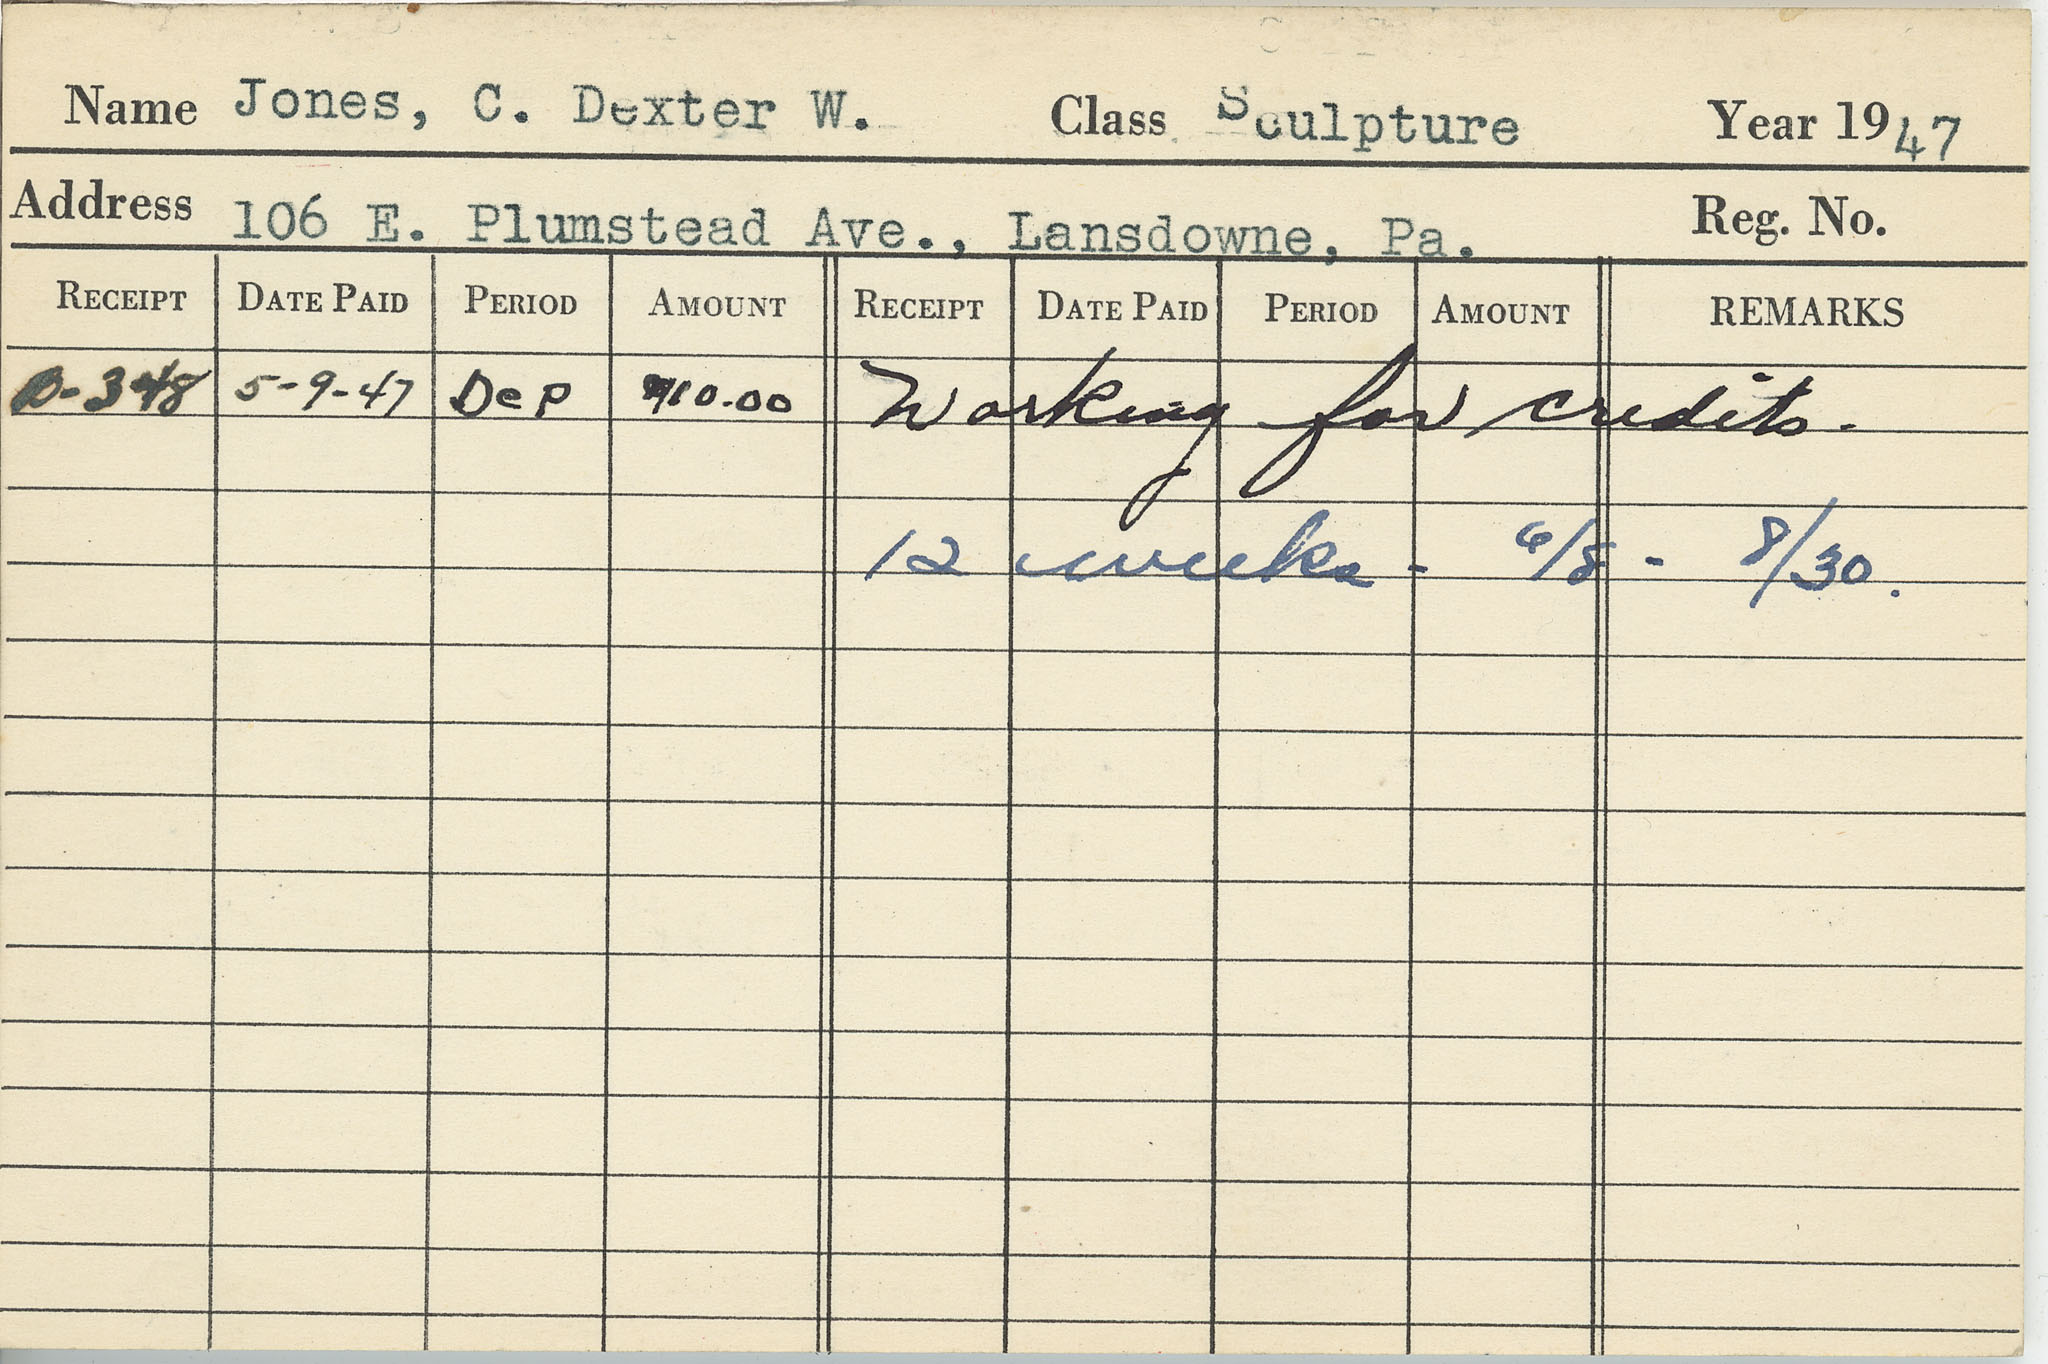 Name Jones, C. Dexter W. Class Sculpture Year 1947
Address 106 E. Plumstead Ave., Lansdowne, Pa. Reg. No.
RECEIPT DATE PAID PERIOD AMOUNT RECEIPT DATE PAID PERIOD AMOUNT REMARKS
D-348 5-9-47 Dep 10.00 Working for credits.
12 weeks - 6/8 - 8/30.